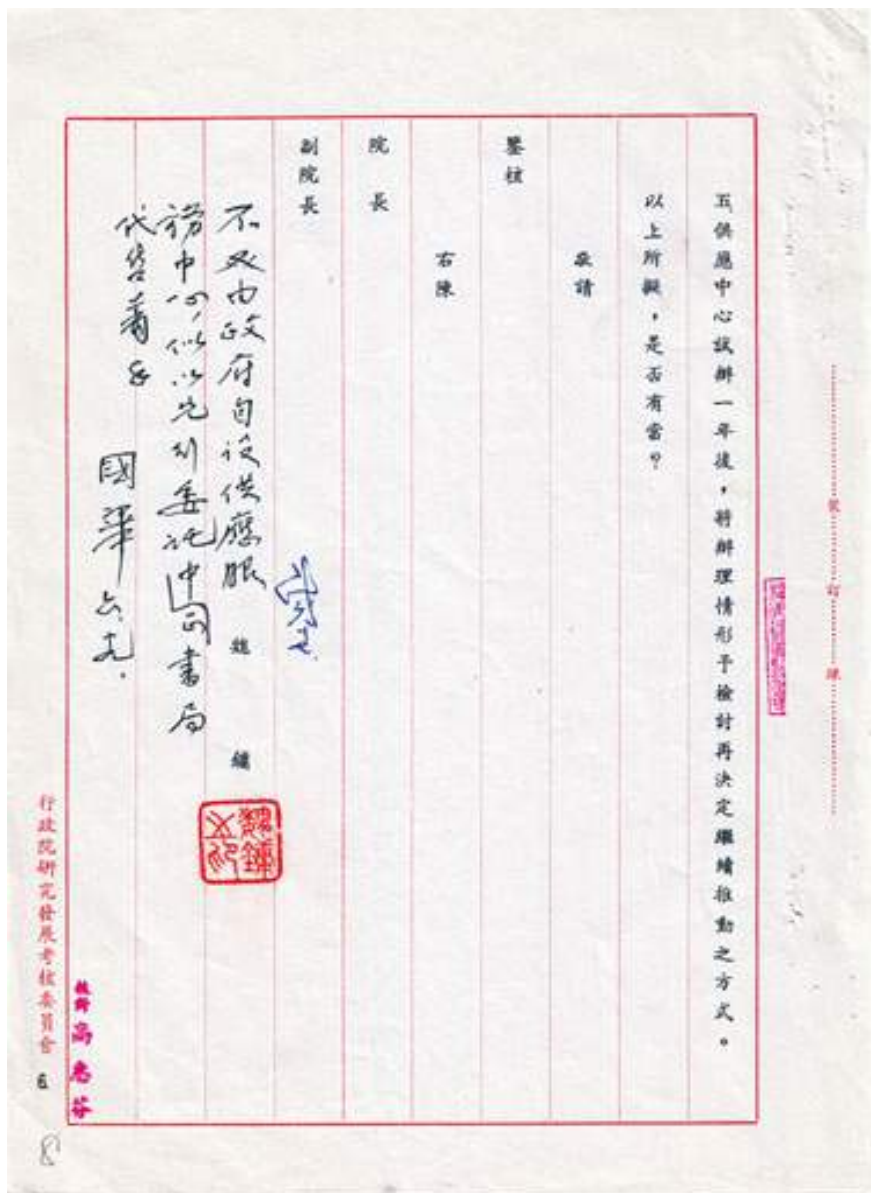 裝訂線
五、供應中心試辦一年後，將辦理情形予檢討再決定繼續推動之方式。
以上所擬，是否有當？
敬請
鑒核
右陳
院長
副院長
魏鏞
不必由政府自設供應服
務中心，似以先行委託中正書局
代售為妥
國華 六、九.
魏鏞
行政院研究發展考核委員會
6
校對 高惠芬
8